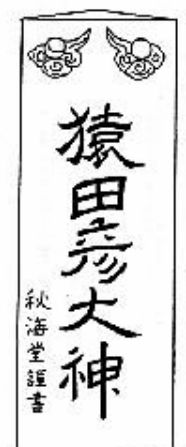 猿田彦大神
秋海堂謹書